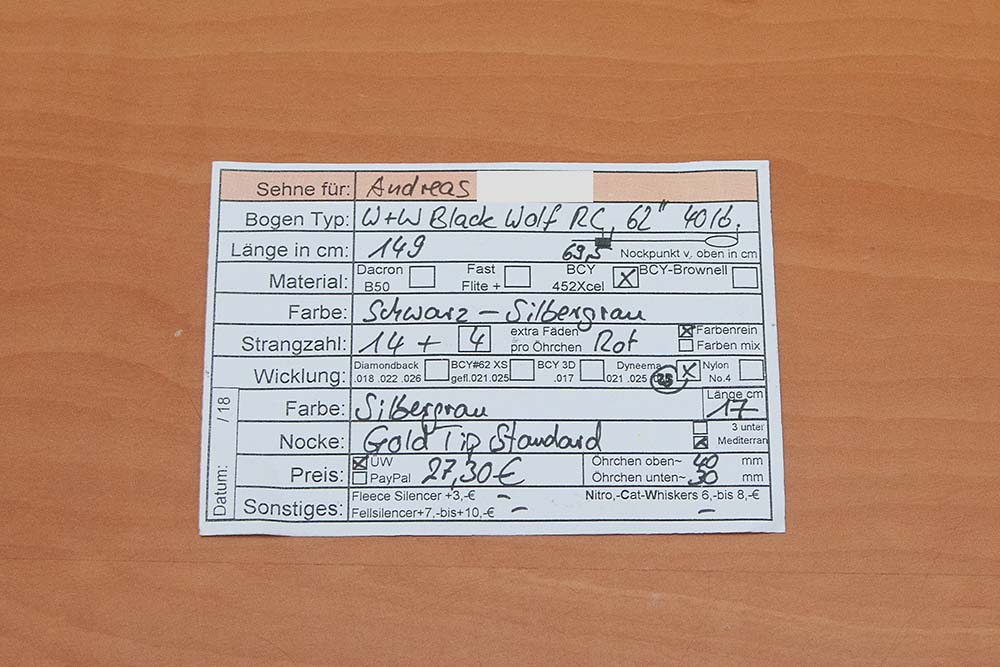 Sehne für: Andreas
Bogen Typ: W+W Black Wolf RC, 62" 40 lb.
Länge in cm: 149 69,5 Nockpunkt v, oben in cm
Material: Dacron B50 Fast Flite + BCY 452Xcel X BCY-Brownell
Farbe: Schwarz – Silbergrau
Strangzahl: 14 + 4 extra Fäden pro Öhrchen Rot X Farbenrein Farben mix
Wicklung: Diamondback .018 .022 .026 BCY#62 XS gefl.021.025 BCY 3D .017 Dyneema .021 .025 X Nylon No.4
Farbe: Silbergrau Länge cm 17
Nocke: Gold Tip Standard 3 unter X Mediterran
Preis: X ÜW PayPal 27,30 € Öhrchen oben~ 40 mm
Öhrchen unten~ 30 mm
Sonstiges: Fleece Silencer +3,-€ – Nitro,-Cat-Whiskers 6,-bis 8,-€
Fellsilencer+7,-bis+10,-€ – –
Datum: / 18